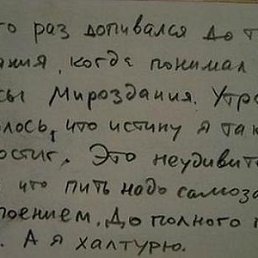 го раз допивался до т
ания, когда понимал
сы Мироздания. Утро
лось, что истину я так
остиг. Это неудивите
что пить надо самоза
поением. До полного п
. А я халтурю.